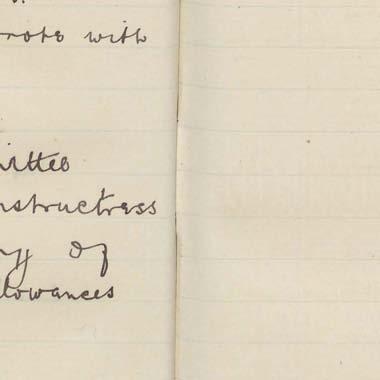 wrote with
mittee
nstructress
ry of
lowances